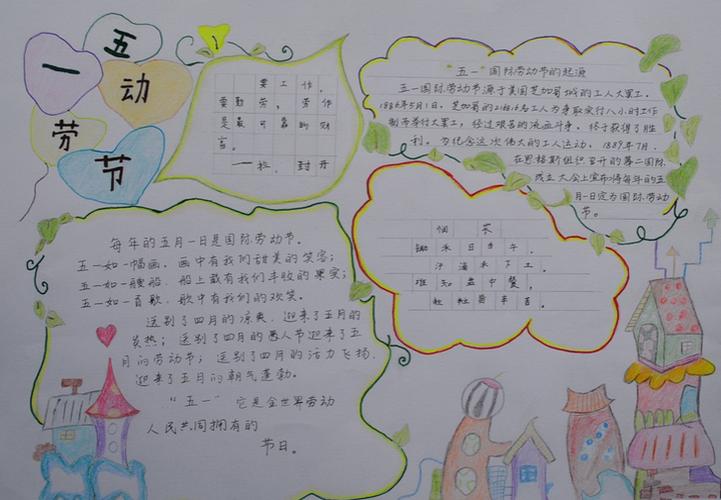 五
一
动
劳
节
要工作,
要勤劳,劳作
是最可靠的财
富。
——拉·封丹
"五一"国际劳动节的起源
五一国际劳动节源于美国芝加哥城的工人大罢工。
1886年5月1日,芝加哥的工人为争取实行八小时工作
制而举行大罢工,经过艰苦的流血斗争,终于获得了胜
利。为纪念这次伟大的工人运动,1889年7月,
在恩格斯组织召开的第二国际
成立大会上宣布将每年的五
月一日定为国际劳动
节。
悯农
锄禾日当午,
汗滴禾下土。
谁知盘中餐,
粒粒皆辛苦。
每年的五月一日是国际劳动节。
五一如一幅画,画中有我们甜美的笑容;
五一如一艘船,船上载有我们丰收的果实;
五一如一首歌,歌中有我们的欢笑。
送别了四月的凉爽,迎来了五月的
炎热;送别了四月的愚人节迎来了五
月的劳动节;送别了四月的活力飞扬,
迎来了五月的朝气蓬勃。
"五一"它是全世界劳动
人民共同拥有的
节日。